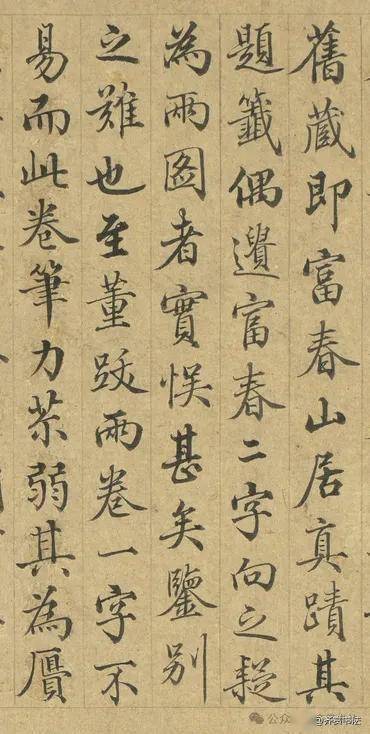 舊藏即富春山居真蹟其
題籤偶遺富春二字向之疑
為兩圖者實悞甚矣鑒別
之難也至董跋兩卷一字不
易而此卷筆力苶弱其為贗
公众